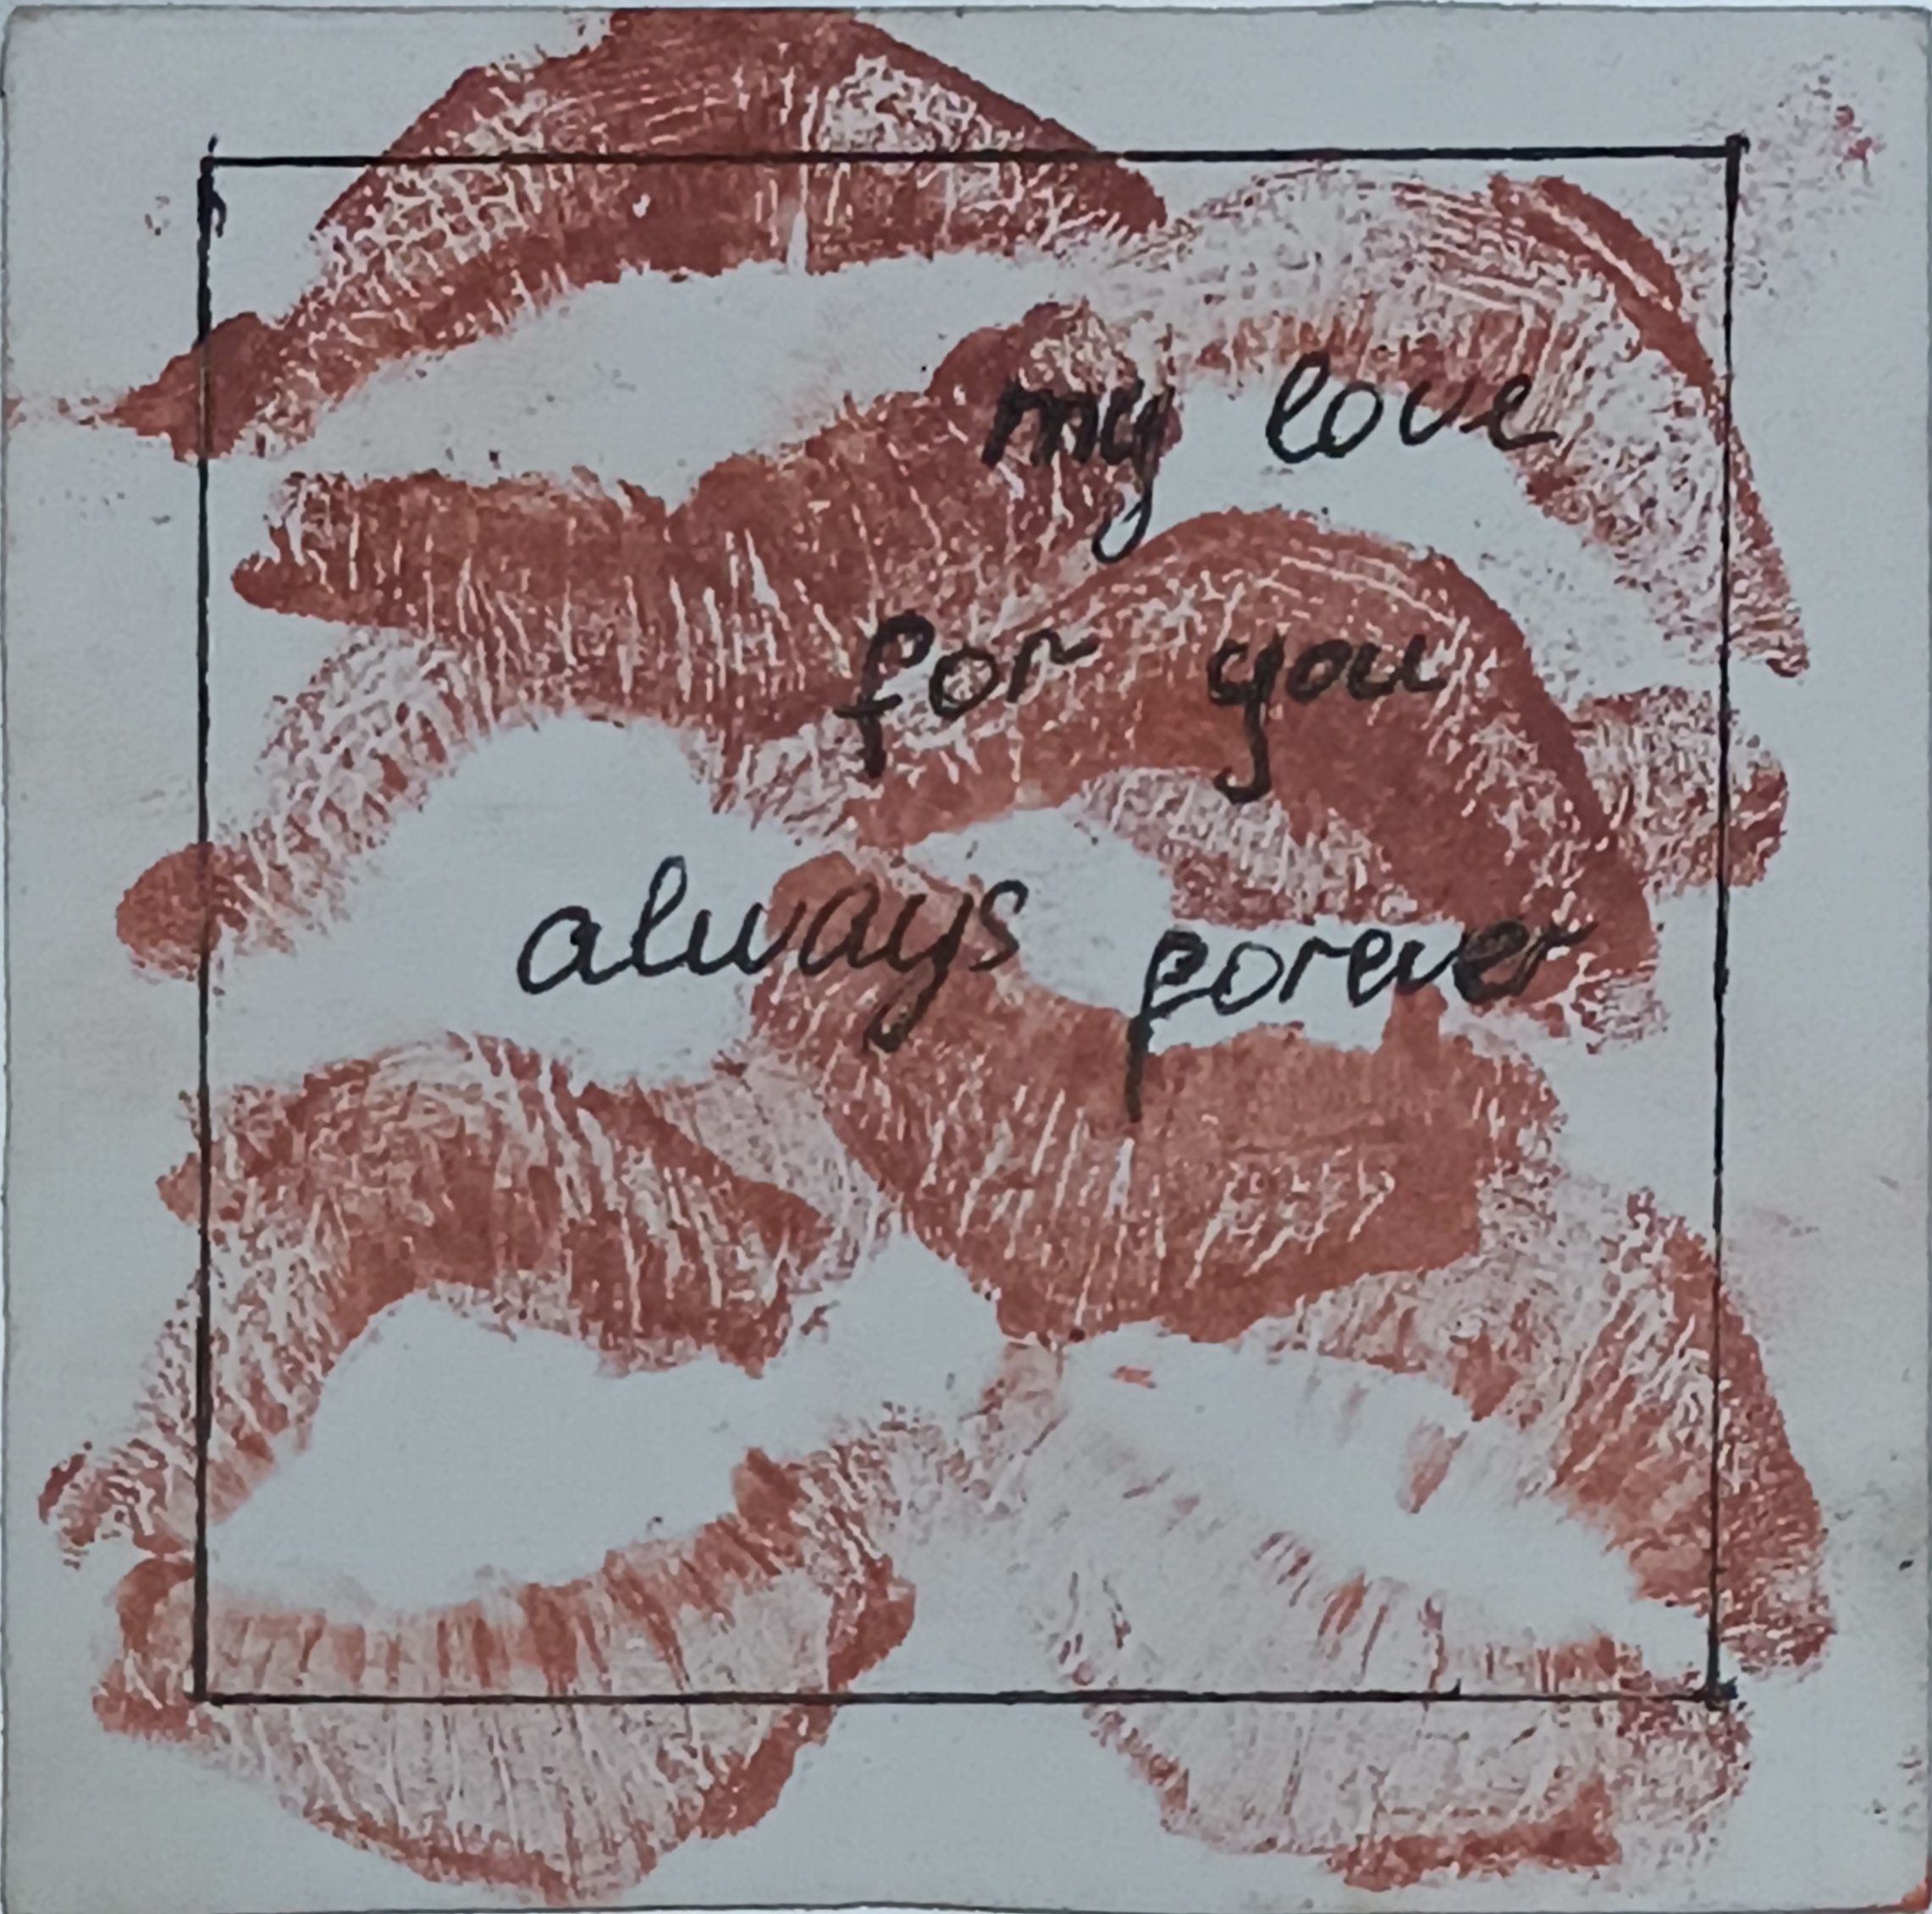 my love
for you
always forever